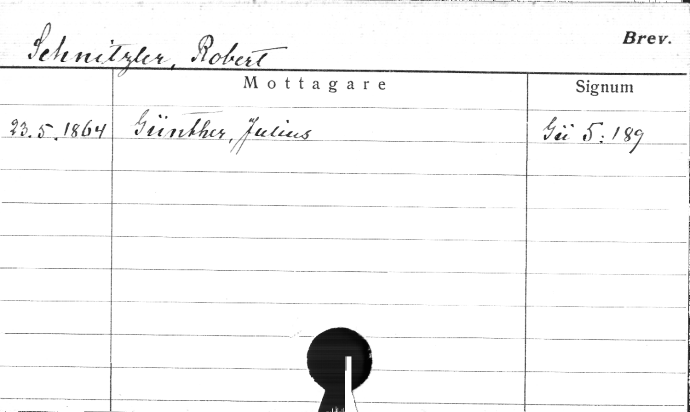 Schnitzler, Robert
Brev.
Mottagare Signum
23.5.1864 Günther, Julius Gü 5:189